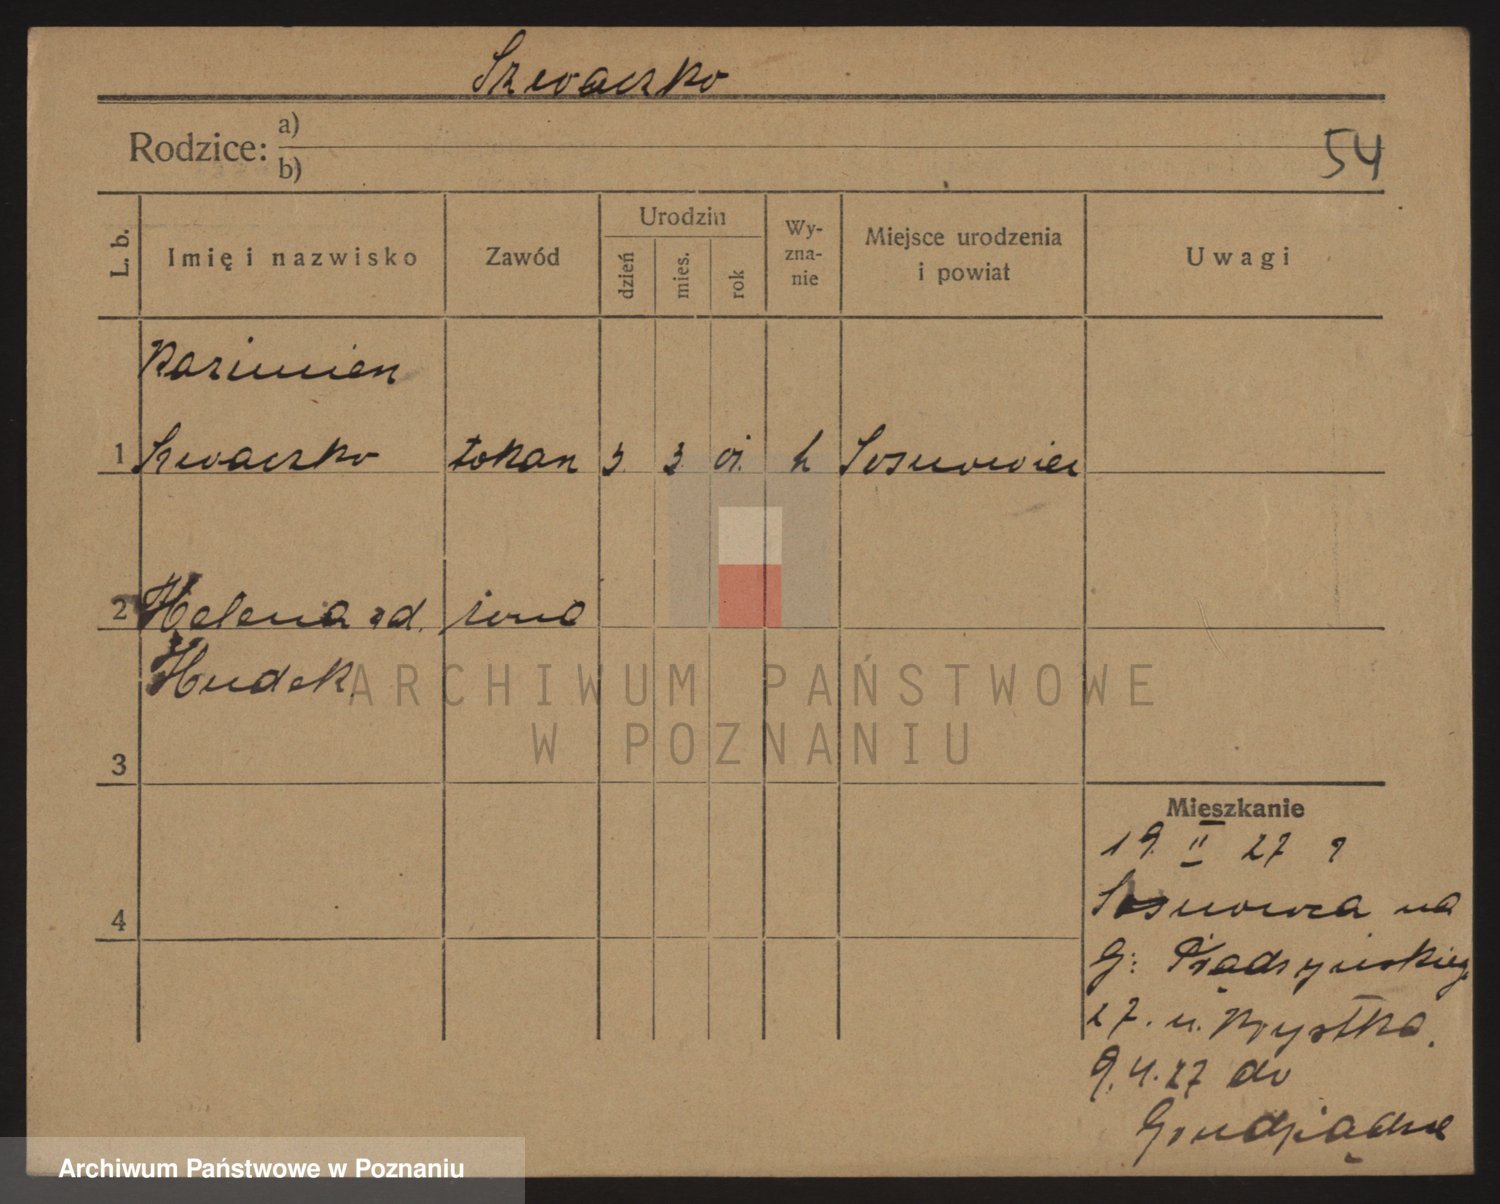 Szwaczko
Rodzice: a)
b)
54
L. b.
Imię i nazwisko
Zawód
Urodzin
dzień
mies.
rok
Wy-
zna-
nie
Miejsce urodzenia
i powiat
Uwagi
Kazimierz
1 Szwaczko tokarz 3 3 01. k Sosnowiec
2 Helena zd. żona
Hudek
ARCHIWUM PAŃSTWOWE
W POZNANIU
3
4
Mieszkanie
19. II 27 z
Sosnowca na
G: Prądzyńskieg
27. u.
9.4.27 do
Grudziądza
Archiwum Państwowe w Poznaniu